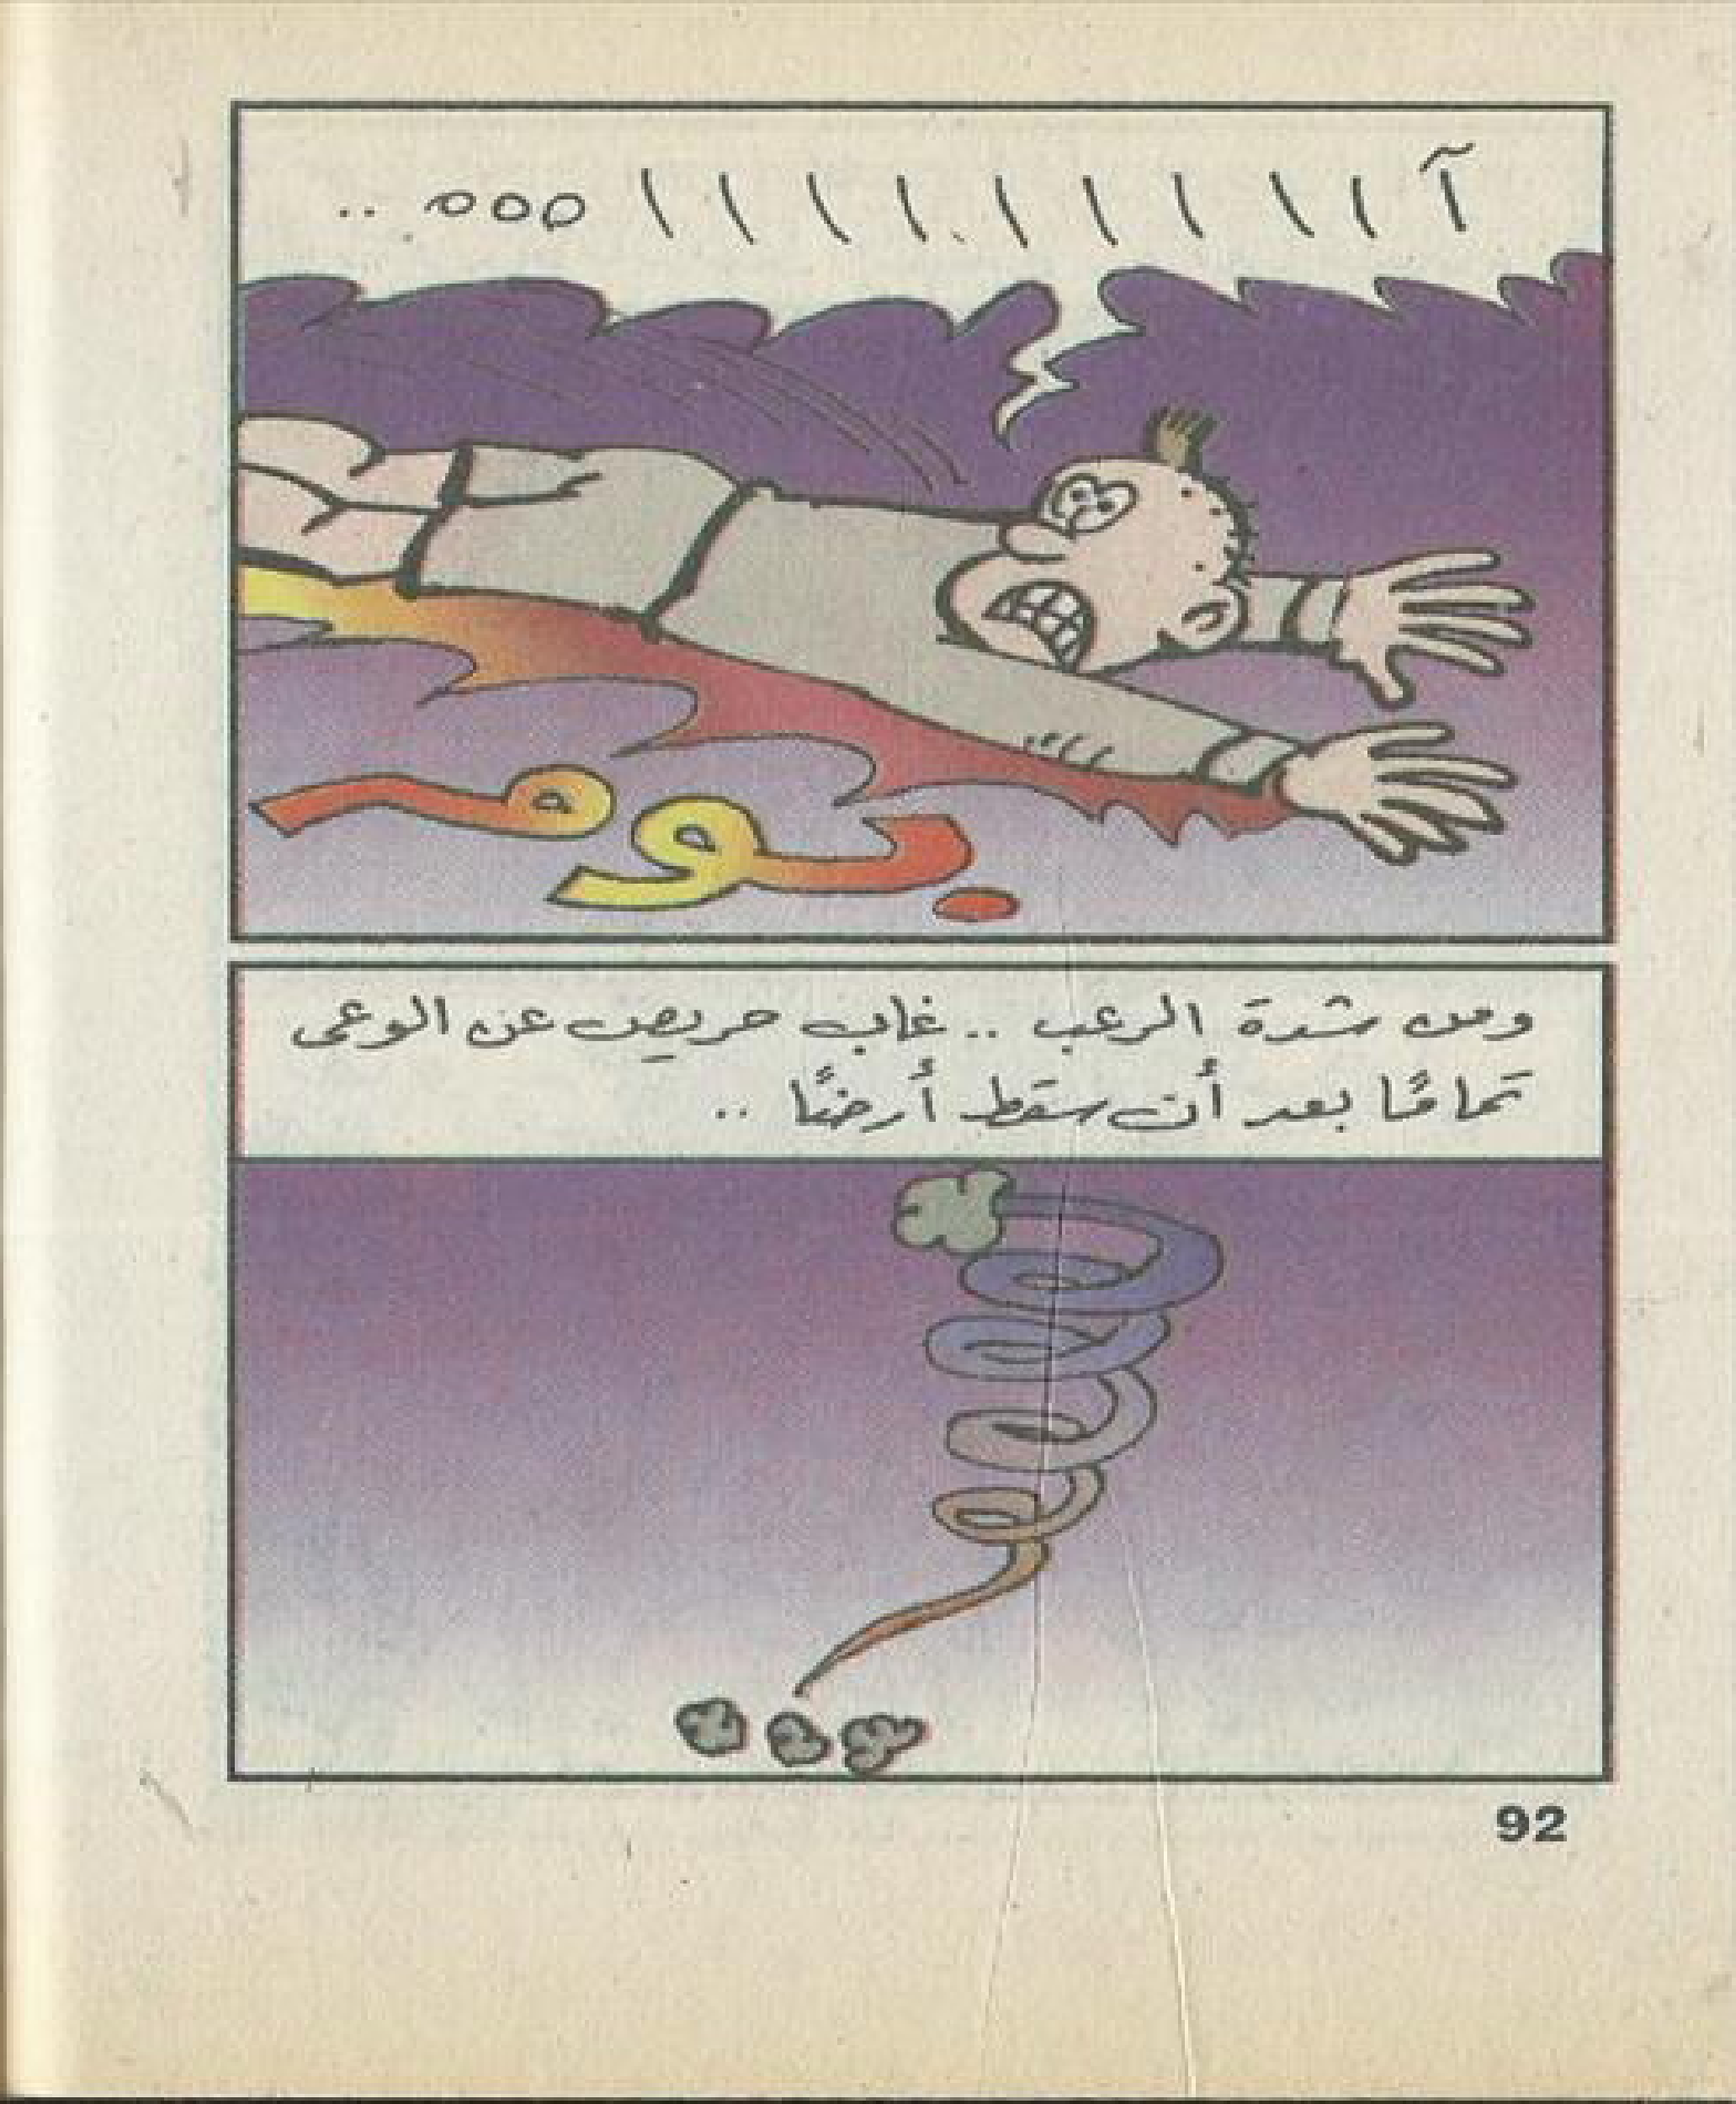 آ ا ا ا ا ا ا ا ا ا ه ه ه ..
بوم
ومن شدة الرعب .. غاب حريص عن الوعى
تمامًا بعد أن سقط أرضًا ..
92